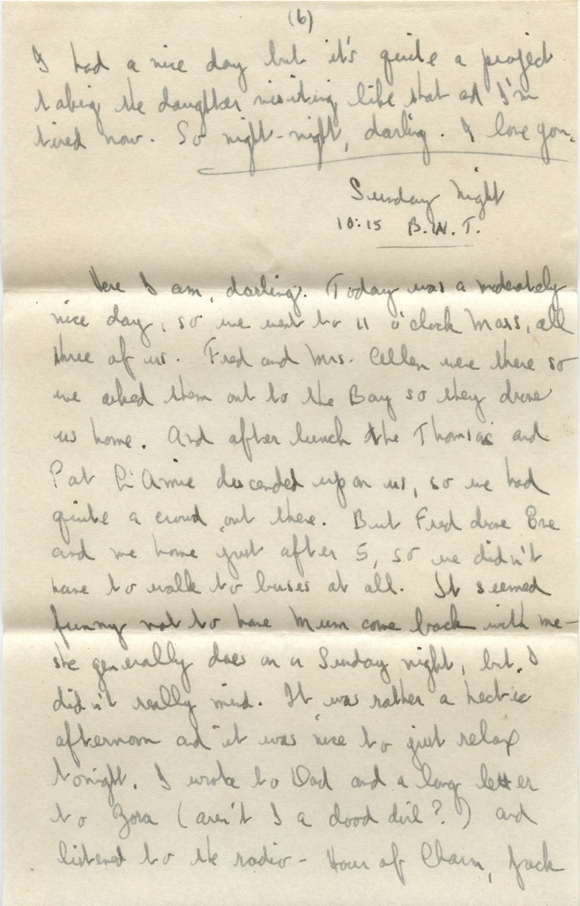 (6)
I had a nice day but it's quite a project
taking the daughter visiting like that and I'm
tired now. So night-night, darling. I love you.
Sunday Night
10:15 B.W.T.
Here I am, darling. Today was a moderately
nice day, so we went to 11 o'clock Mass, all
three of us. Fred and Mrs. Cullen were there so
we asked them out to the Bay so they drove
us home. And after lunch the Thomas and
Pat descended upon us, so we had
quite a crowd out there. But Fred drove Eve
and me home just after 5, so we didn't
have to walk to buses at all. It seemed
funny not to have Mum come back with me -
she generally does on a Sunday night, but I
didn't really mind. It was rather a hectic
afternoon and it was nice to just relax
tonight. I wrote to Dad and a long letter
to Zora (aren't I a dood dirl?) and
listened to the radio - Hour of Charm, Jack